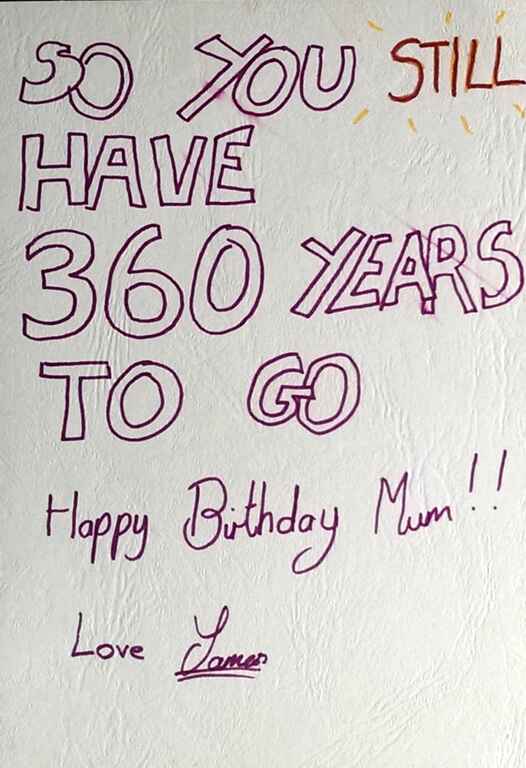 SO YOU STILL
HAVE
360 YEARS
TO GO
Happy Birthday Mum!!
Love James